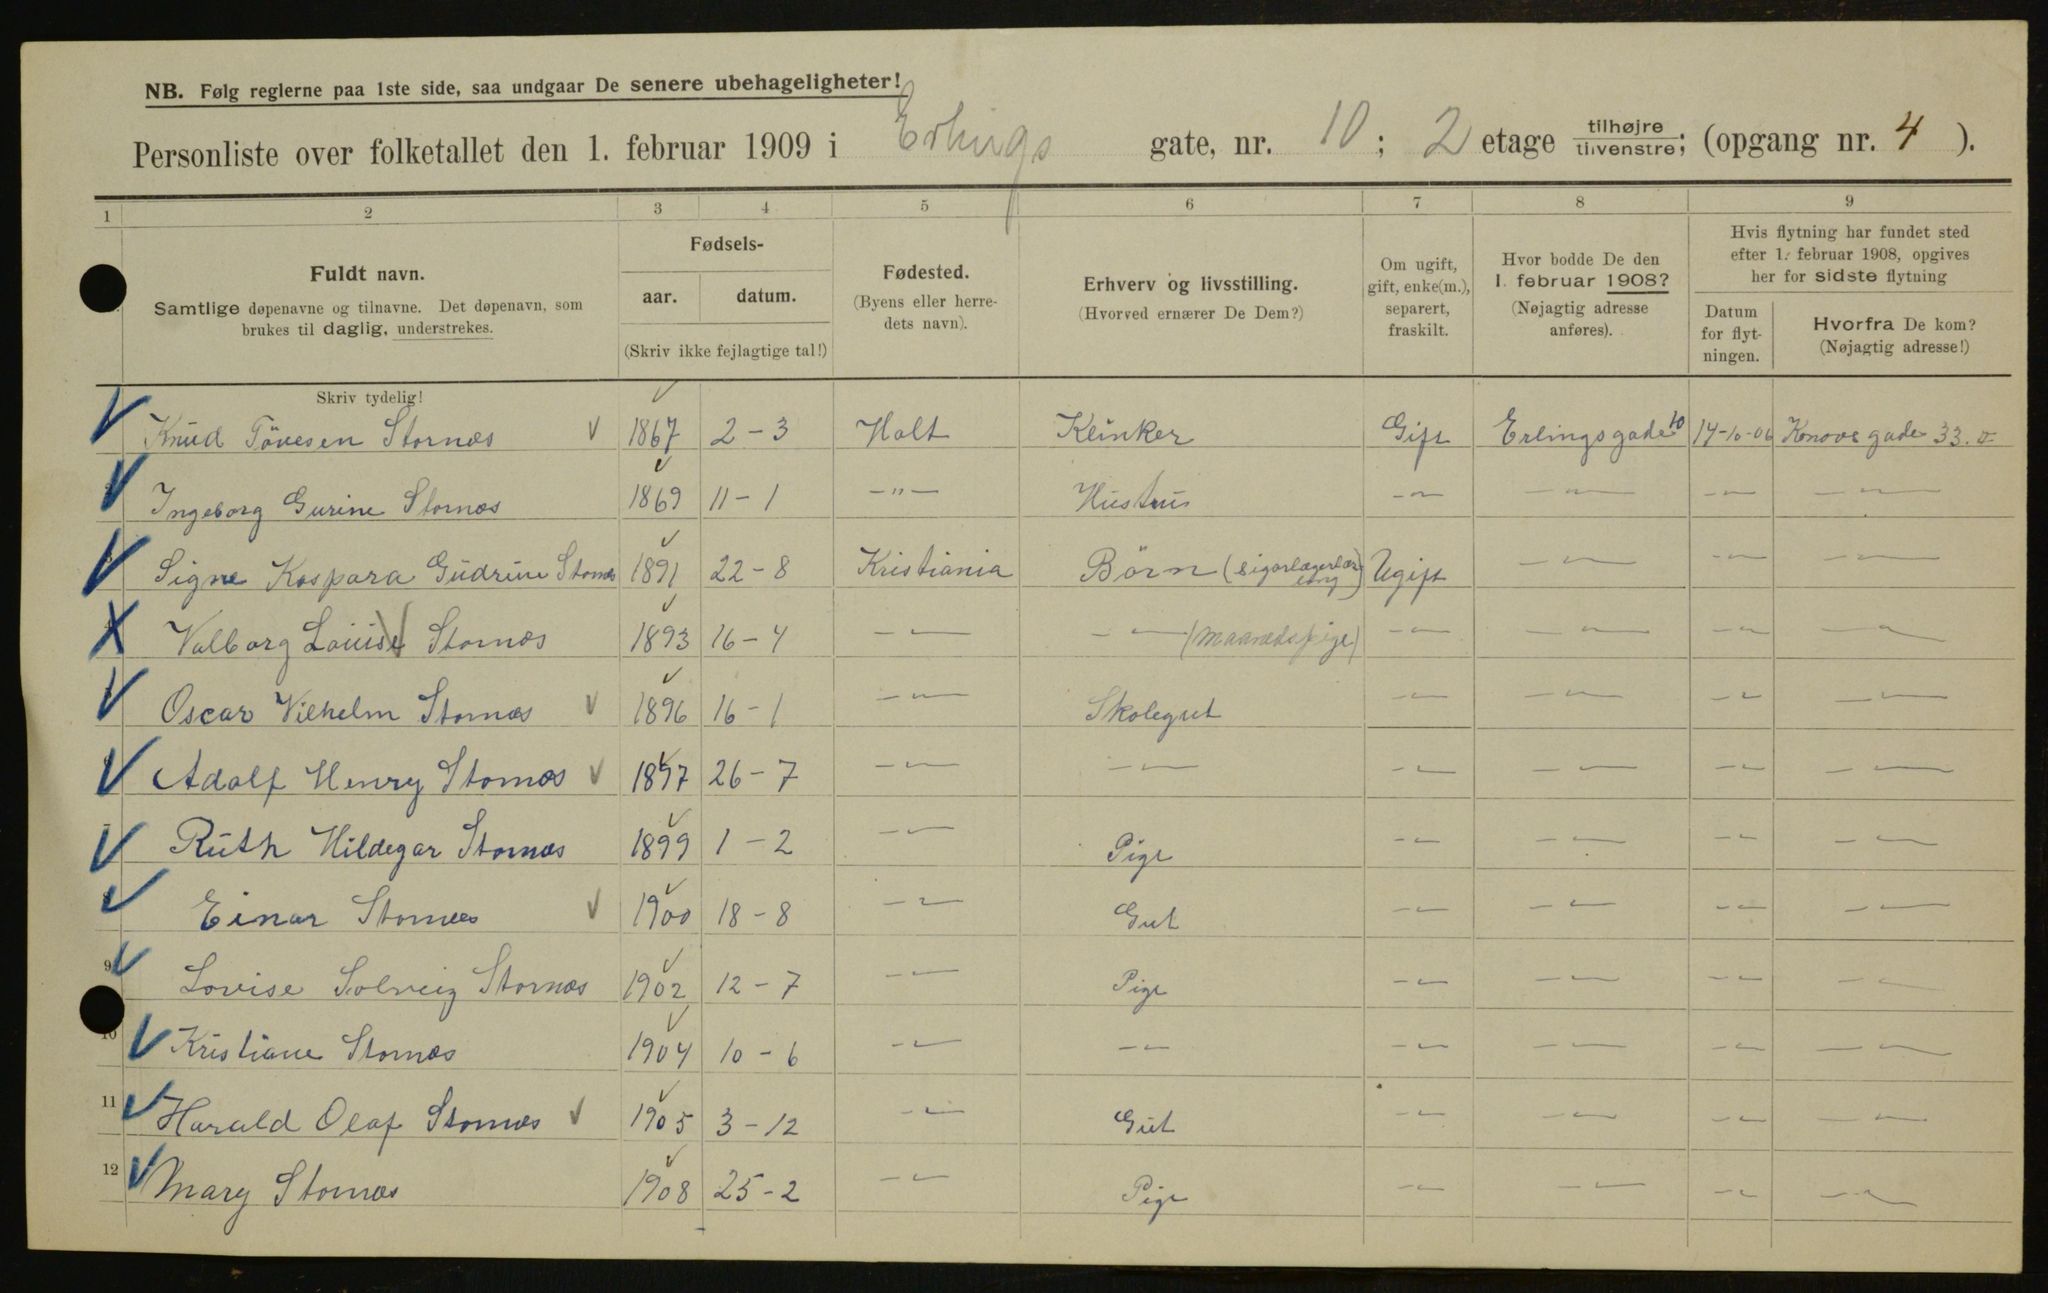 NB. Følg reglerne paa 1ste side, saa undgaar De senere ubehageligheter!
Personliste over folketallet den 1. februar 1909 i Erlings gate, nr. 10; 2 etage tilhøjre tilvenstre; (opgang nr. 4).
1 2 3 4 5 6 7 8 9
Fuldt navn.
Samtlige døpenavne og tilnavne. Det døpenavn, som
brukes til daglig, understrekes.
Fødsels-
aar. datum.
(Skriv ikke fejlagtige tal!)
Fødested.
(Byens eller herre-
dets navn).
Erhverv og livsstilling.
(Hvorved ernærer De Dem?)
Om ugift,
gift, enke(m.),
separert,
fraskilt.
Hvor bodde De den
1. februar 1908?
(Nøjagtig adresse
anføres).
Hvis flytning har fundet sted
efter 1. februar 1908, opgives
her for sidste flytning
Datum
for flyt-
ningen.
Hvorfra De kom?
(Nøjagtig adresse!)
Skriv tydelig!
Knud Tövesen Stornæs 1867 2-3 Holt Klinker Gift Erlingsgade 10 14-10-06 Konovs gade 33.
Ingeborg Gurine Stornæs 1869 11-1 -"- Hustru -"- -"- -"- -"-
Signe Kaspara Gudrun Stornæs 1891 22-8 Kristiania Börn Ugift -"- -"- -"-
Valborg Louise Stornæs 1893 16-4 -"- -"- (Maanedspige) -"- -"- -"- -"-
Oscar Vilhelm Stornæs 1896 16-1 -"- Skolegut -"- -"- -"- -"-
Adolf Henry Stornæs 1897 26-7 -"- -"- -"- -"- -"- -"-
Ruth Hildegar Stornæs 1899 1-2 -"- Pige -"- -"- -"- -"-
Einar Stornæs 1900 18-8 -"- Gut -"- -"- -"- -"-
9 Lovise Solveig Stornæs 1902 12-7 -"- Pige -"- -"- -"- -"-
10 Kristiane Stornæs 1904 10-6 -"- -"- -"- -"- -"- -"-
11 Harald Olaf Stornæs 1905 3-12 -"- Gut -"- -"- -"- -"-
12 Mary Stornæs 1908 25-2 -"- Pige -"- -"- -"- -"-